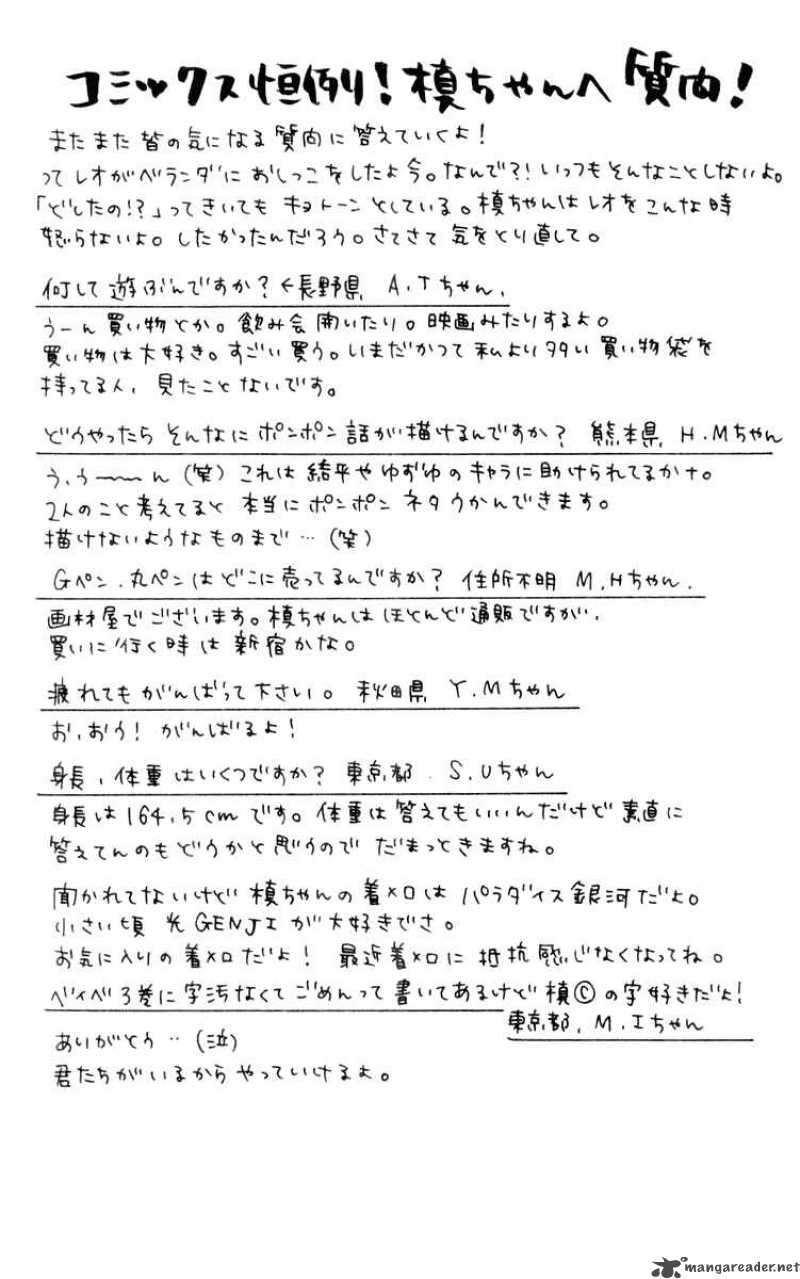 コミックス恒例！槙ちゃんへ質問！
またまた皆の気になる質問に答えていくよ！
ってレオがベランダにおしっこをしたよ今。なんで？！いっつもそんなことしないよ。
「どしたの！？」ってきいてもキョトーンとしている。槙ちゃんはレオをこんな時
怒らないよ。したかったんだろう。さてさて気をとり直して。
何して遊ぶんですか？←長野県 A.Tちゃん.
うーん買い物とか。飲み会開いたり。映画みたりするよ。
買い物は大好き。すごい買う。いまだかつて私より多い買い物袋を
持ってる人、見たことないです。
どうやったらそんなにポンポン話が描けるんですか？ 熊本県 H.Mちゃん
う、う〜〜ん（笑）これは結平やゆずゆのキャラに助けられてるかナ。
2人のこと考えてると本当にポンポンネタうかんできます。
描けないようなものまで…（笑）
Gペン、丸ペンはどこに売ってるんですか？ 住所不明 M.Hちゃん.
画材屋でございます。槙ちゃんはほとんど通販ですが、
買いに行く時は新宿かな。
疲れてもがんばって下さい。 秋田県 Y.Mちゃん
お、おう！がんばるよ！
身長、体重はいくつですか？ 東京都. S.Uちゃん
身長は164.5cmです。体重は答えてもいいんだけど素直に
答えてんのもどうかと思うのでだまっときますね。
聞かれてないけど槙ちゃんの着メロはパラダイス銀河だよ。
小さい頃光GENJIが大好きでさ。
お気に入りの着メロだよ！ 最近着メロに抵抗感じなくなってね。
ベイベ3巻に字汚なくてごめんって書いてあるけど槙©の字好きだよ！
東京都. M.Iちゃん
ありがとう…（泣）
君たちがいるからやっていけるよ。
mangareader.net